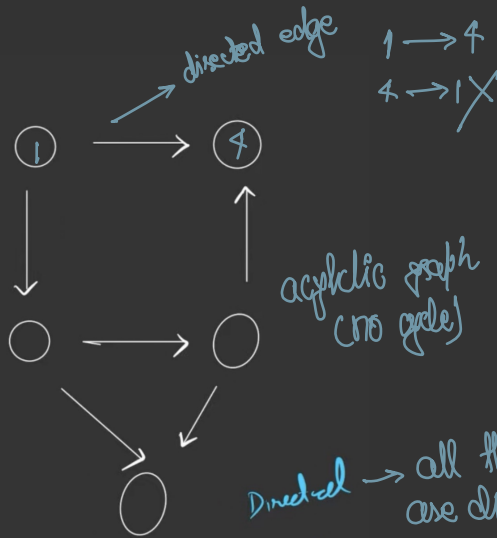 directed edge
1 → 4
4 → 1 X
1
4
acyclic graph
(no cycle)
Directed → all th
are di